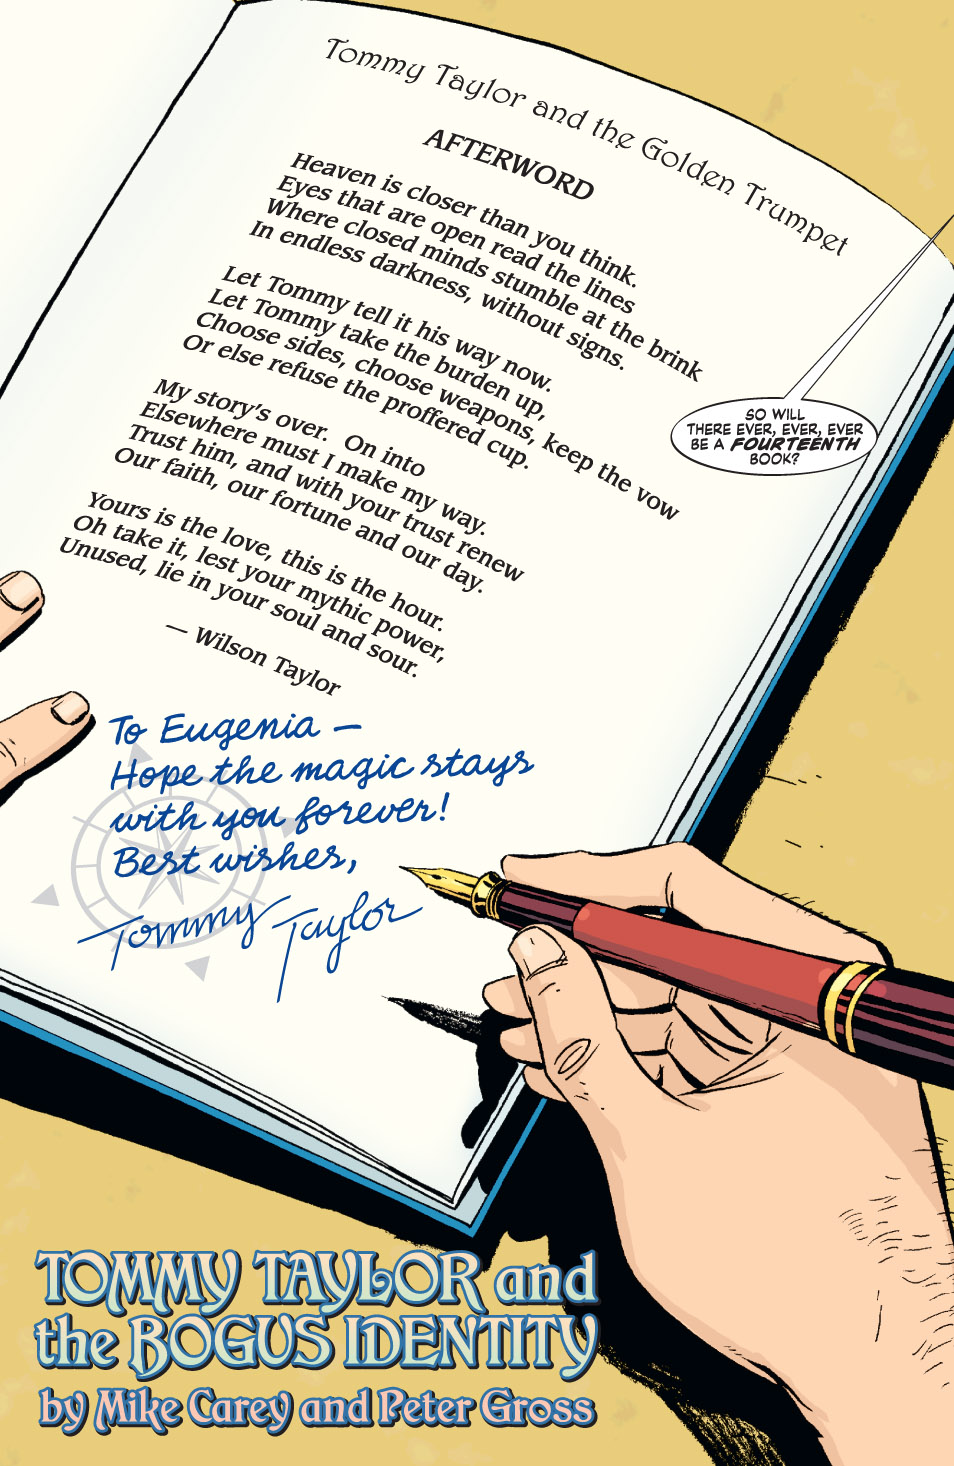 Tommy Taylor and the Golden Trumpet
AFTERWORD
Heaven is closer than you think.
Eyes that are open read the lines
Where closed minds stumble at the brink
In endless darkness, without signs.
Let Tommy tell it his way now.
Let Tommy take the burden up,
Choose sides, choose weapons, keep the vow
Or else refuse the proffered cup.
My story's over. On into
Elsewhere must I make my way.
Trust him, and with your trust renew
Our faith, our fortune and our day.
Yours is the love, this is the hour.
Oh take it, lest your mythic power,
Unused, lie in your soul and sour.
— Wilson Taylor
SO WILL
THERE EVER, EVER, EVER
BE A FOURTEENTH
BOOK?
To Eugenia —
Hope the magic stays
with you forever!
Best wishes,
Tommy Taylor
TOMMY TAYLOR and
the BOGUS IDENTITY
by Mike Carey and Peter Gross